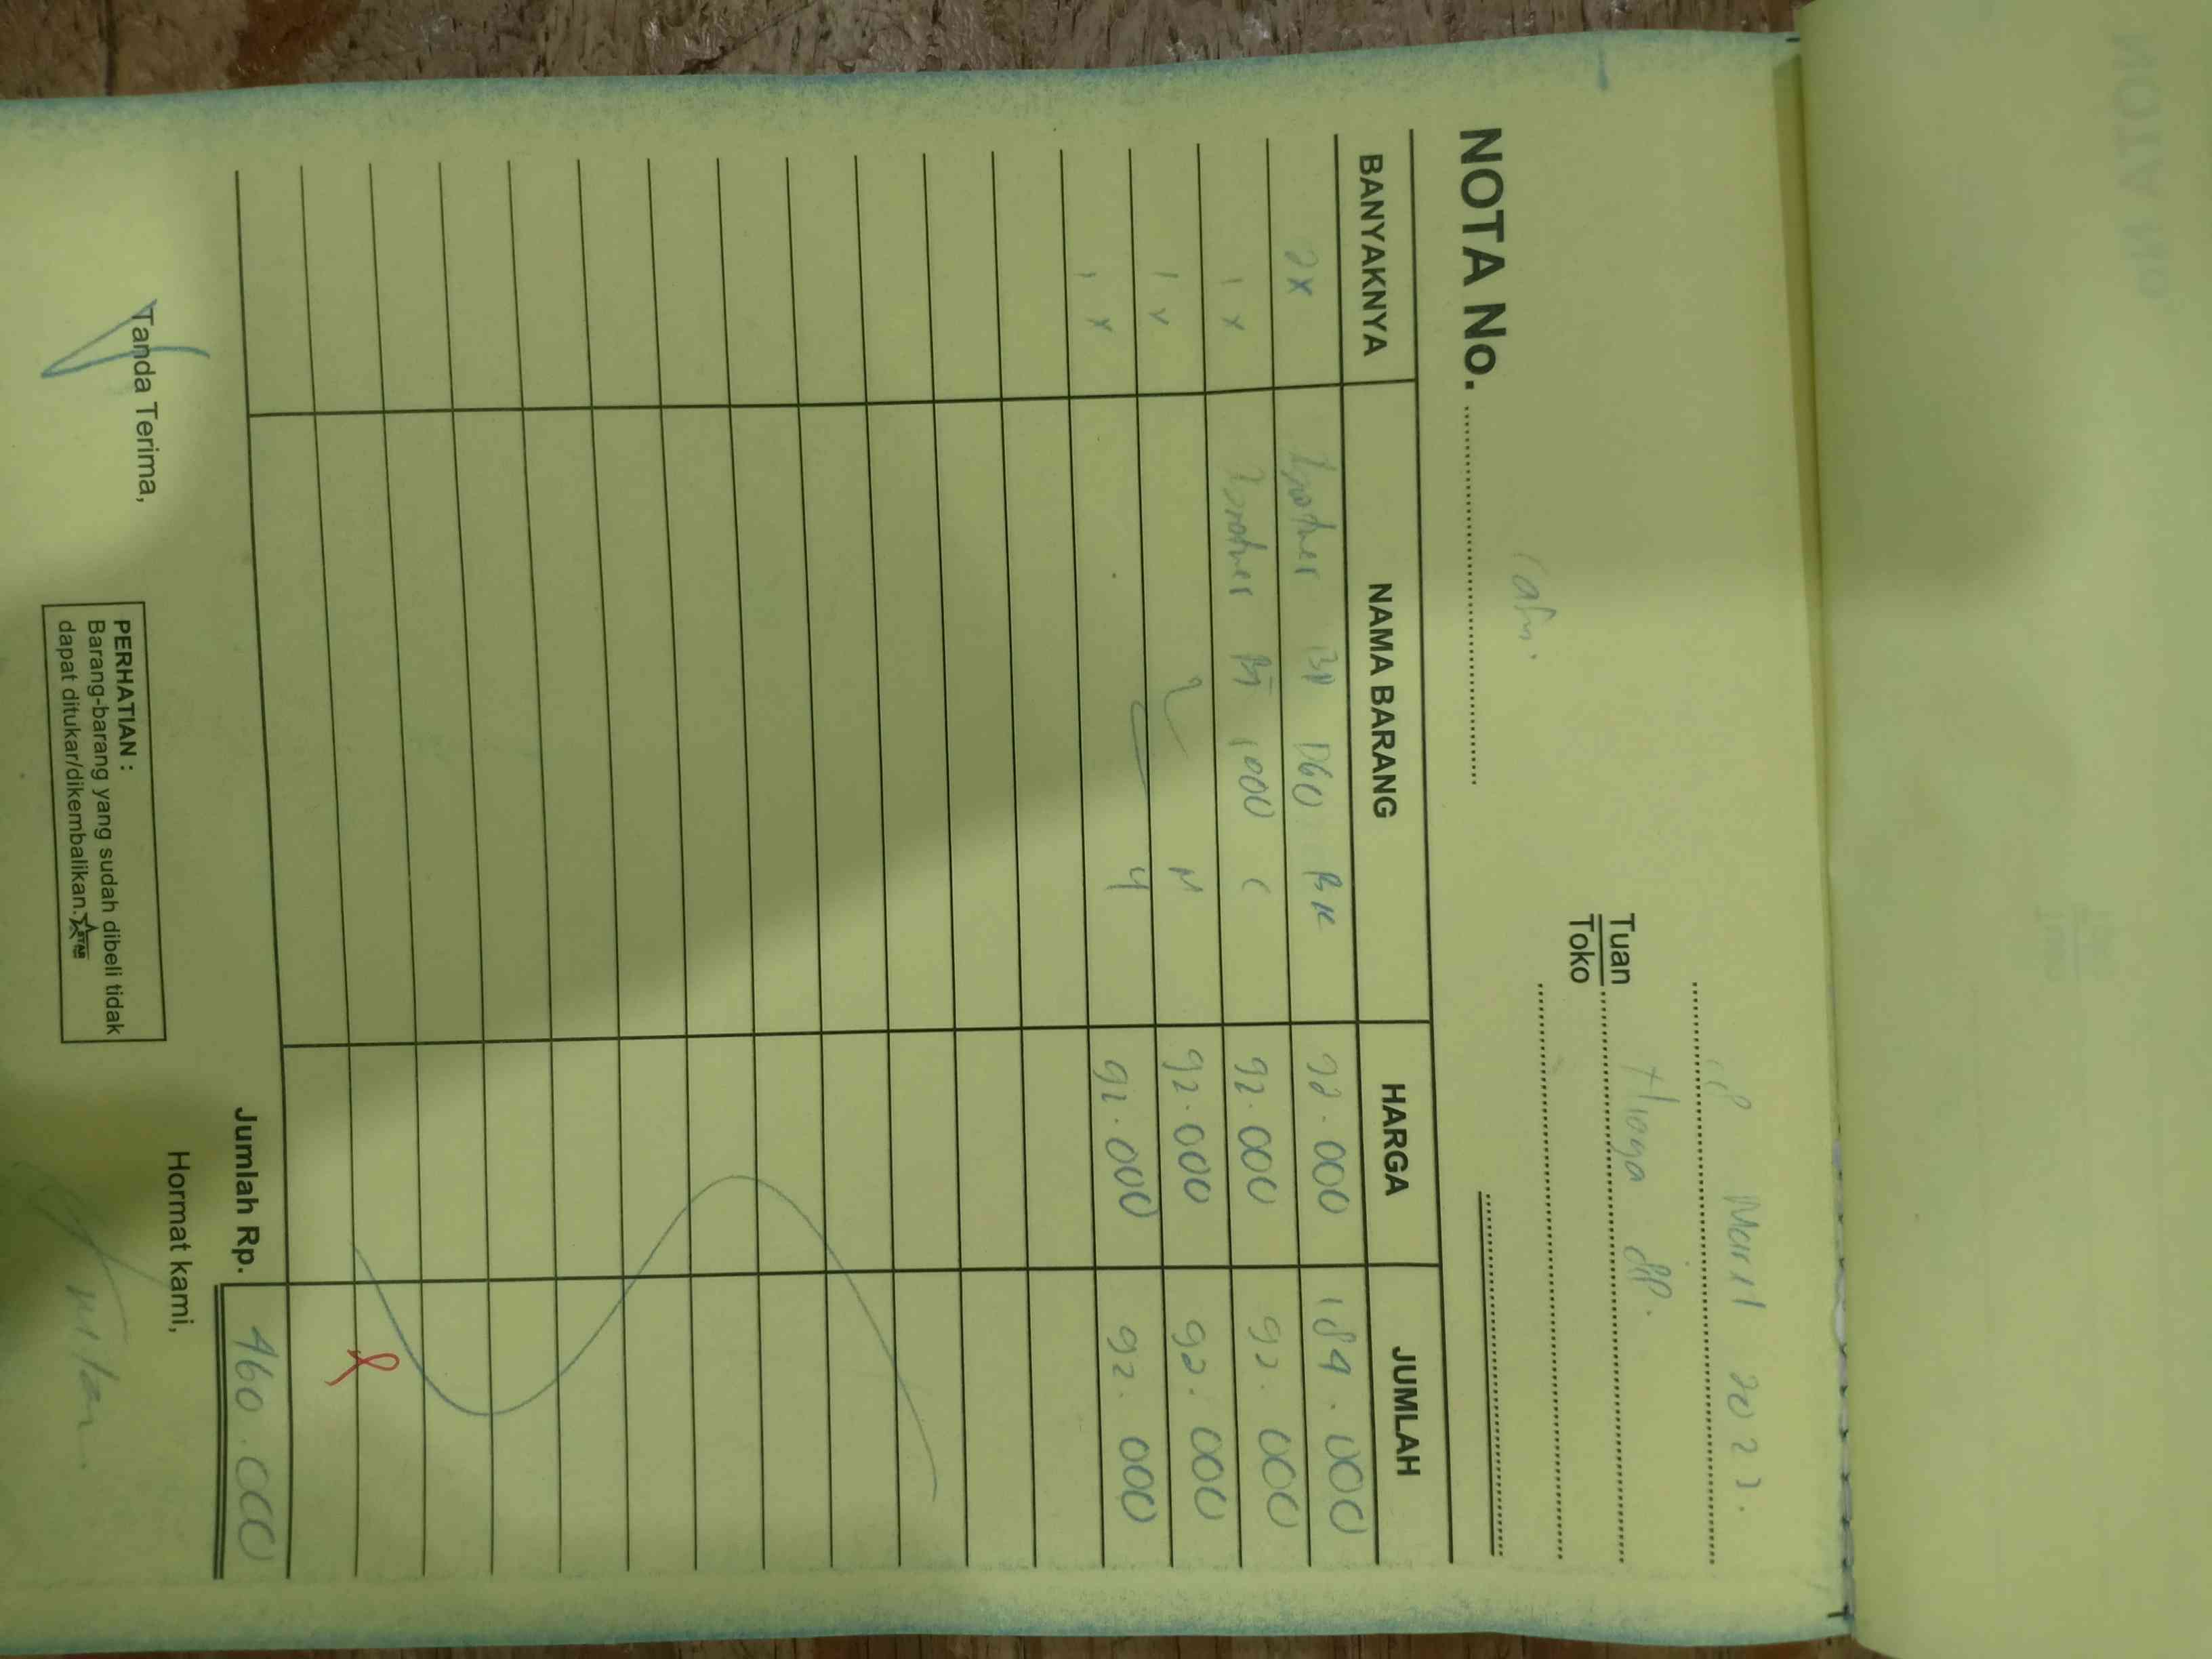 Maret 2023.
Tuan Hioga dp.
Toko
NOTA No.
BANYAKNYA NAMA BARANG HARGA JUMLAH
2x brother BT D60 BK 92.000 184.000
1 x brother BT 5000 C 92.000 92.000
1 x M 92.000 92.000
1 x Y 92.000 92.000
Jumlah Rp. 460.000
Tanda Terima, Hormat kami,
PERHATIAN :
Barang-barang yang sudah dibeli tidak
dapat ditukar/dikembalikan.
STAR
wulan